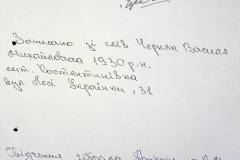 Записано зі слів Черняк Василя
Михайловича 1930 р.н.
смт. Костянтинівка
вул Лесі Українки, 31
Свідчення зібрала